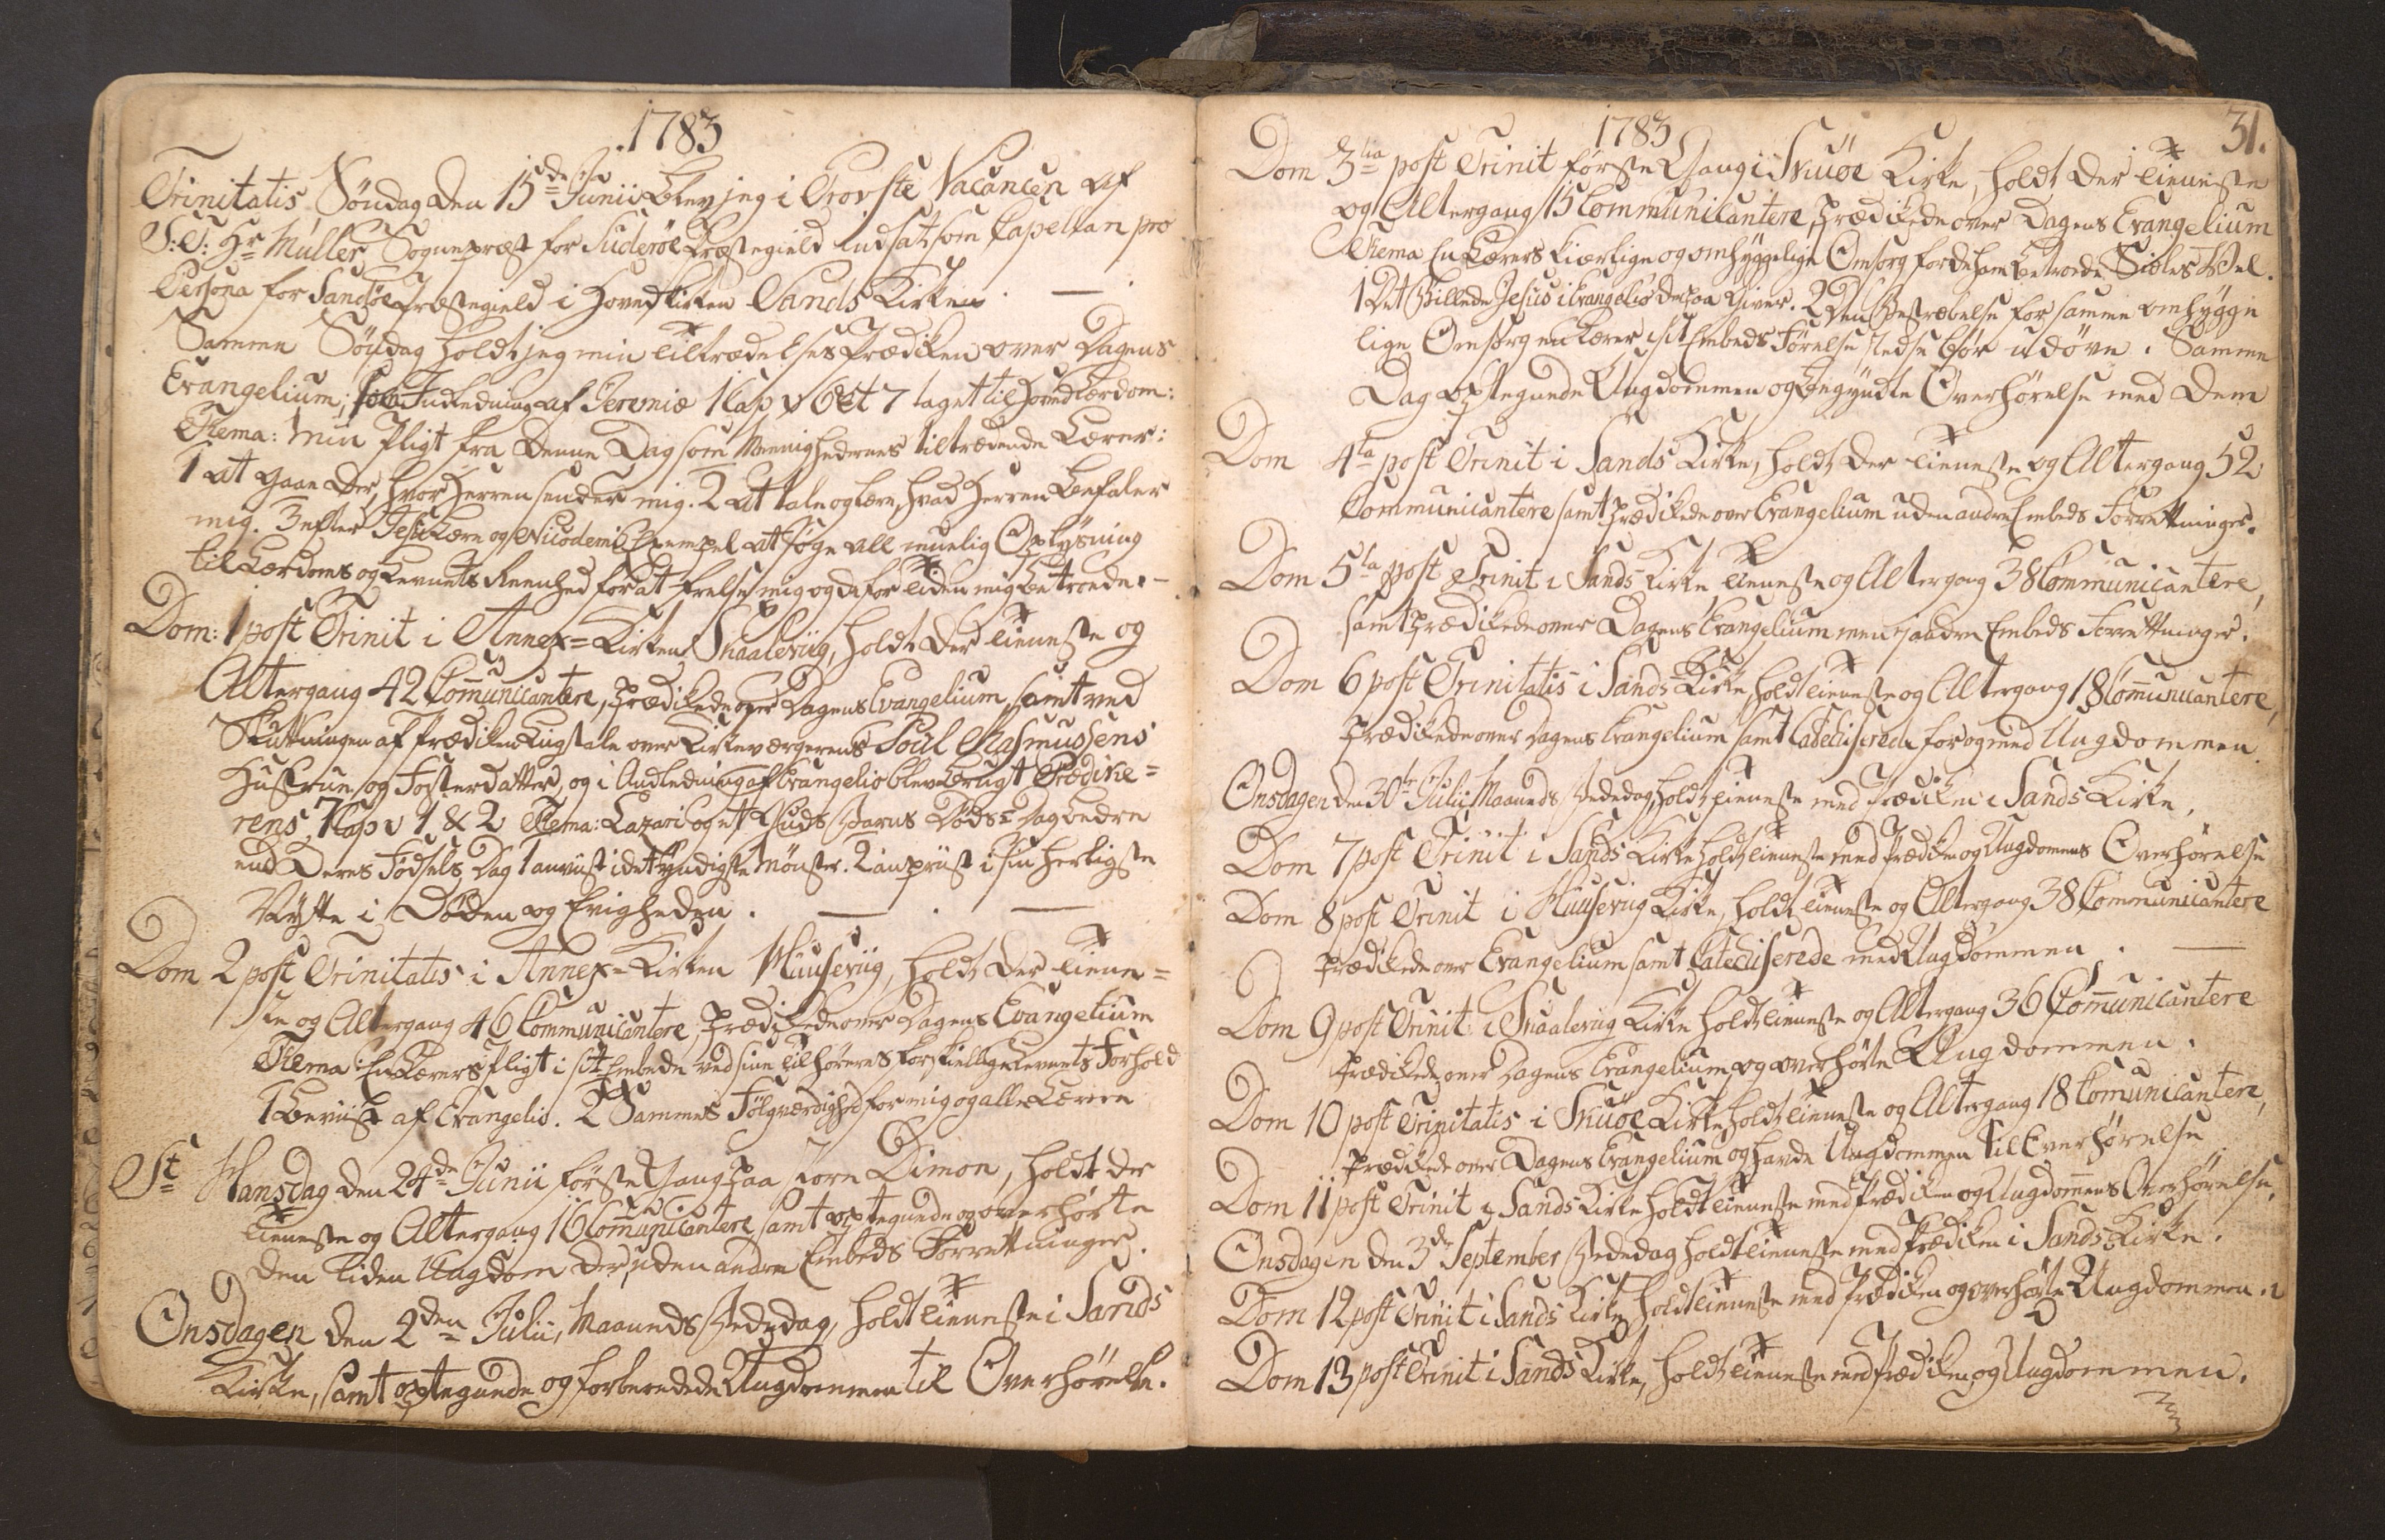 1783
Trinitatis Søndag den 15de Junii blev jeg i Provste Vacancen af
S: T: Hr Müller Sognepræst for Suderøe Præstegield indsat som Capellan pro
Persona for Sandøe Præstegield i Hovedkirken Sands Kirken. —
Samme Søndag holdt jeg min Tiltrædelses Prædiken over Dagens
Evangelium; som Indledning af Jeremiæ 1 Cap v 6 et 7 taget til Hoved Lærdom:
Thema: Min Pligt fra denne Dag som Menighedernes tiltrædende Lærer:
1 at gaae der, hvor Herren sender mig. 2 at tale og lære, hvad Herren befaler
mig. 3 efter Jesu Lære og Nicodemi Exempel at søge all muelig Oplysning
til Lærdoms og Levnets Reenhed for at frelse mig og de for Tiden mig betroede. —
Dom: 1 post Trinit i Annex-Kirken Skaalevüg, holdt der ✝ieneste og
Altergang 42 Com̄unicantere, Prædikede over Dagens Evangelium, samt ved
Slutningen af Prædiken Liigtale over Kirkeværgerens Poul Rasmussens
Hustrue og Fosterdatter, og i Anledning af Evangelio blev brugt Prædike=
rens 7 Cap v 1 & 2 Thema: Lazari og et Guds Barns Døds-Dag bedre
end Deres Fødsels Dag 1 anviist i det tydligste Mønster. 2 anpriist i sin herligste
Nytte i Døden og Evigheden. — . —
Dom 2 post Trinitatis i Annex-Kirken Huusevüg, holdt der ✝iene=
ste og Altergang 46 Communicantere, Prædikede over Dagens Evangelium
Thema: En Lærers Pligt i sit Embede ved sine Tilhøreres forskiellige Levnets Forhold
1 Beviist af Evangelio. 2 Sammes Følgværdighed for mig og alle Lærere
St Hansdag den 24de Junii første Gang paa Store Dimon, holdt der
✝ieneste og Altergang 16 Com̄unicantere samt optegnede og overhørte
den liden Ungdom der, uden andre Embeds Forrettninger.
Onsdagen den 2den Julii, Maaneds Bededag, holdt ✝ieneste i Sands
Kirke, samt optegnede og forberedede Ungdommen til Overhørelse.
1783
31.
Dom 3tia post Trinit første Gang i Skuøe Kirke, holdt der ✝ieneste
og Altergang 15 Communicantere, Prædikede over Dagens Evangelium
Thema En Lærers kiærlige og omhyggelige Omsorg for de ham betroede Siæles Vel.
1 Det Billede Jesus i Evangelio derpaa giver. 2 Den Bestræbelse for samme omhygge
lige Omsorg en Lærer i sit Embeds Førelse stedse bør udøve. Samme
Dag optegnede Ungdommen og begyndte Overhørelse med dem
Dom 4ta post Trinit i Sands Kirke, holdt der ✝ieneste og Altergang 52
Communicantere samt Prædikede over Evangelium uden andre Embeds Forrettninger.
Dom 5ta post Trinit i Sands Kirke, ✝ieneste og Altergang 38 Communicantere,
samt Prædikede over Dagens Evangelium men ej andre Embeds Forrettninger.
Dom 6 post Trinitatis i Sands Kirke, holdt ✝ieneste og Altergang 18 Com̄unicantere,
Prædikede over Dagens Evangelium samt Catechiserede for og med Ungdommen
Onsdagen den 30te Julii Maaneds Bededag, holdt ✝ieneste med Prædiken i Sands Kirke.
Dom 7 post Trinit i Sands Kirke holdt ✝ieneste med Prædiken og Ungdomens Overhørelse
Dom 8 post Trinit i Huusevüg Kirke, holdt ✝ieneste og Altergang 38 Communicantere
Prædikede over Evangelium samt Catechiserede med Ungdommen. —
Dom 9 post Trinit i Skaalevüg Kirke holdt ✝ieneste og Altergang 36 Com̄unicantere
Prædikede over Dagens Evangelium og overhørte Ungdommen.
Dom 10 post Trinitatis i Skuøe Kirke, holdt ✝ieneste og Altergang 18 Comunicantere,
Prædikede over Dagens Evangelium og havde Ungdommen til Overhørelse
Dom 11 post Trinit i Sands Kirke holdt ✝ieneste med Prædiken og Ungdom̄ens Overhørelse,
Onsdagen den 3de September Bededag holdt ✝ieneste med Prædiken i Sands Kirke.
Dom 12 post Trinit i Sands Kirke holdt ✝ieneste med Prædiken og overhørte Ungdommen.
Dom 13 post Trinit i Sands Kirke, holdt ✝ieneste med Prædiken og Ungdommen.